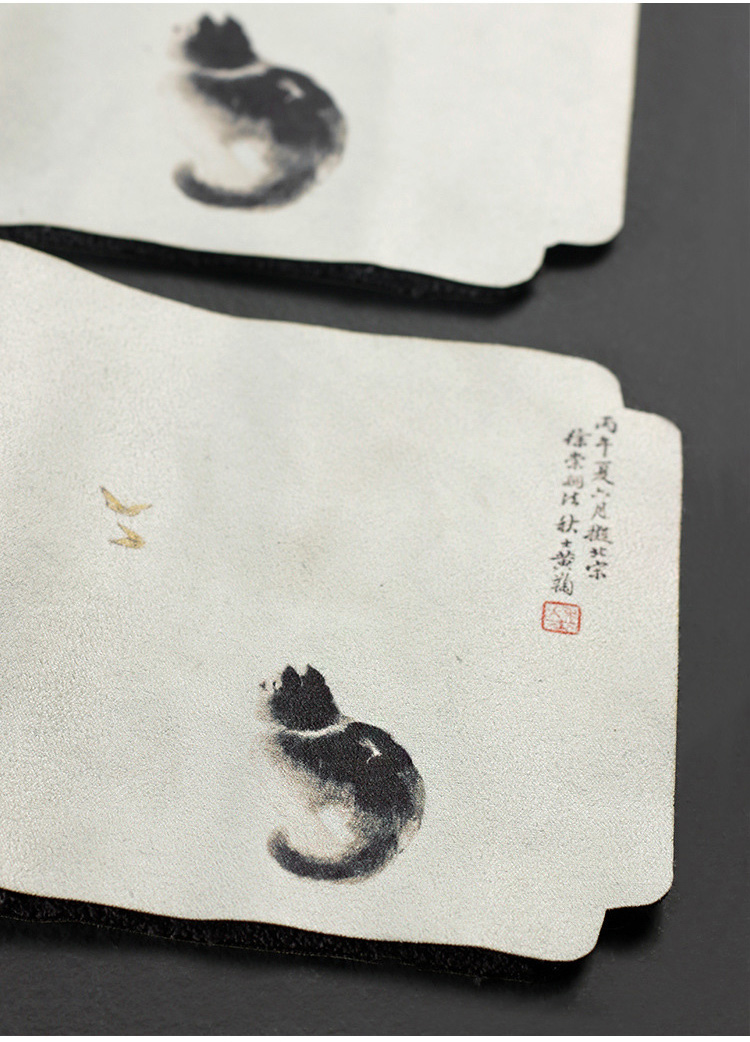 丙午夏六月擬北宋
徐崇嗣法秋士黄鞠